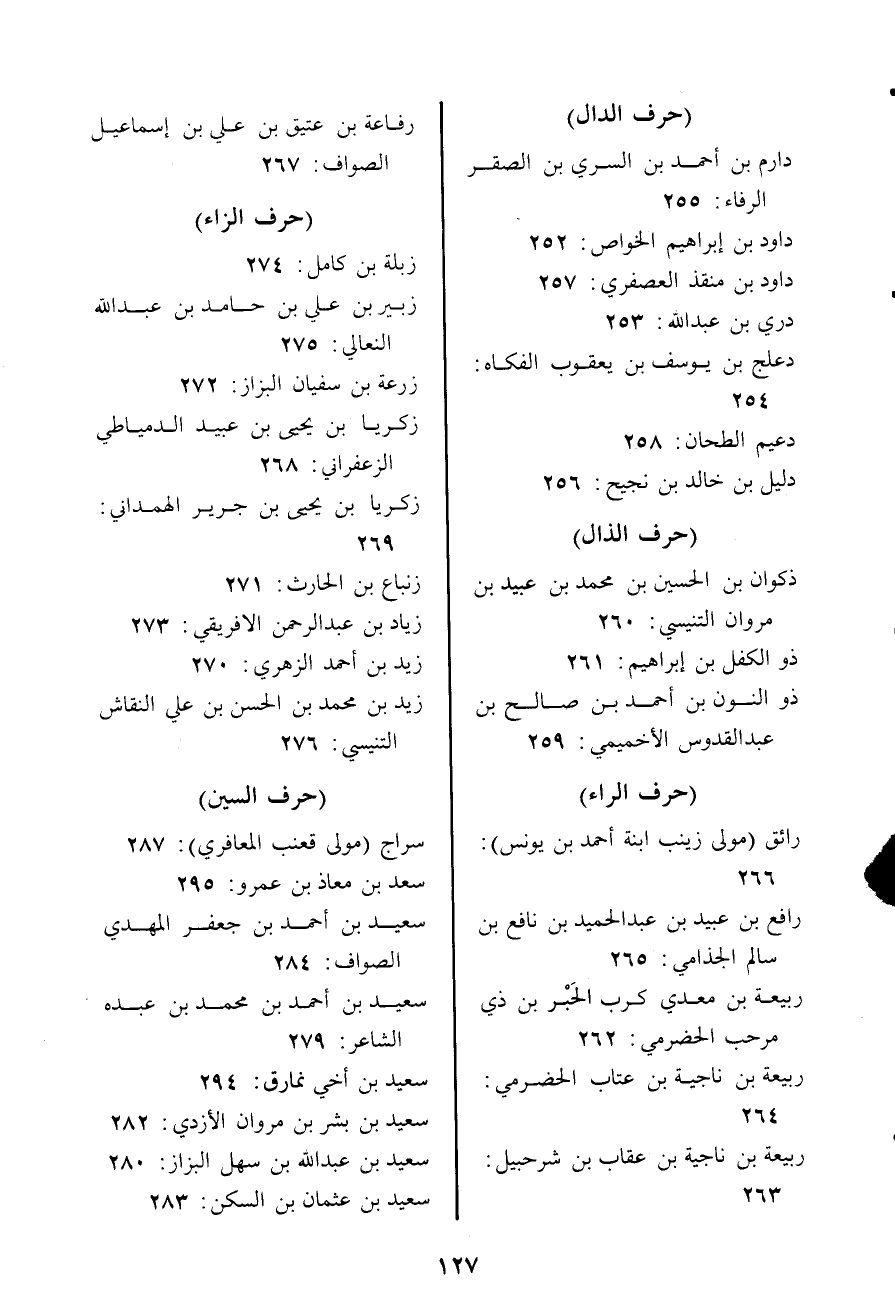 (حرف الدال)
دارم بن أحمد بن السري بن الصقر
الرفاء: ٢٥٥
داود بن إبراهيم الخواص: ٢٥٢
داود بن منقذ العصفري: ٢٥٧
دري بن عبدالله: ٢٥٣
دعلج بن يوسف بن يعقوب الفكاه:
٢٥٤
دعيم الطحان: ٢٥٨
دليل بن خالد بن نجيح: ٢٥٦
(حرف الذال)
ذكوان بن الحسين بن محمد بن عبيد بن
مروان التنيسي: ٢٦٠
ذو الكفل بن إبراهيم: ٢٦١
ذو النون بن أحمد بن صالح بن
عبدالقدوس الأخميمي: ٢٥٩
(حرف الراء)
رائق (مولى زينب ابنة أحمد بن يونس):
٢٦٦
رافع بن عبيد بن عبدالحميد بن نافع بن
سالم الجذامي: ٢٦٥
ربيعة بن معدي كرب الحَبْر بن ذي
مرحب الحضرمي: ٢٦٢
ربيعة بن ناجية بن عتاب الحضرمي:
٢٦٤
ربيعة بن ناجية بن عقاب بن شرحبيل:
٢٦٣
رفاعة بن عتيق بن علي بن إسماعيل
الصواف: ٢٦٧
(حرف الزاء)
زبلة بن كامل: ٢٧٤
زبير بن علي بن حامد بن عبدالله
النعالي: ٢٧٥
زرعة بن سفيان البزاز: ٢٧٢
زكريا بن يحيى بن عبيد الدمياطي
الزعفراني: ٢٦٨
زكريا بن يحيى بن جرير الهمداني:
٢٦٩
زنباع بن الحارث: ٢٧١
زياد بن عبدالرحمن الافريقي: ٢٧٣
زيد بن أحمد الزهري: ٢٧٠
زيد بن محمد بن الحسن بن علي النقاش
التنيسي: ٢٧٦
(حرف السين)
سراج (مولى قعنب المعافري): ٢٨٧
سعد بن معاذ بن عمرو: ٢٩٥
سعيد بن أحمد بن جعفر المهدي
الصواف: ٢٨٤
سعيد بن أحمد بن محمد بن عبده
الشاعر: ٢٧٩
سعيد بن أخي نمارق: ٢٩٤
سعيد بن بشر بن مروان الأزدي: ٢٨٢
سعيد بن عبدالله بن سهل البزاز: ٢٨٠
سعيد بن عثمان بن السكن: ٢٨٣
١٢٧